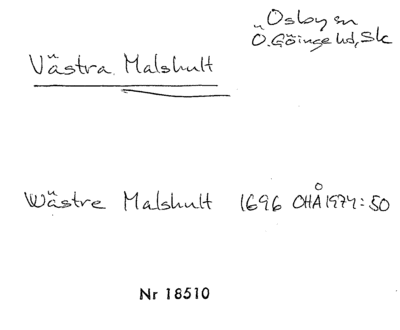 Osby sn
Ö. Göinge hd, Sk
Västra Malshult
Wästre Malshult 1696 OHÅ 1974:50
Nr 18510